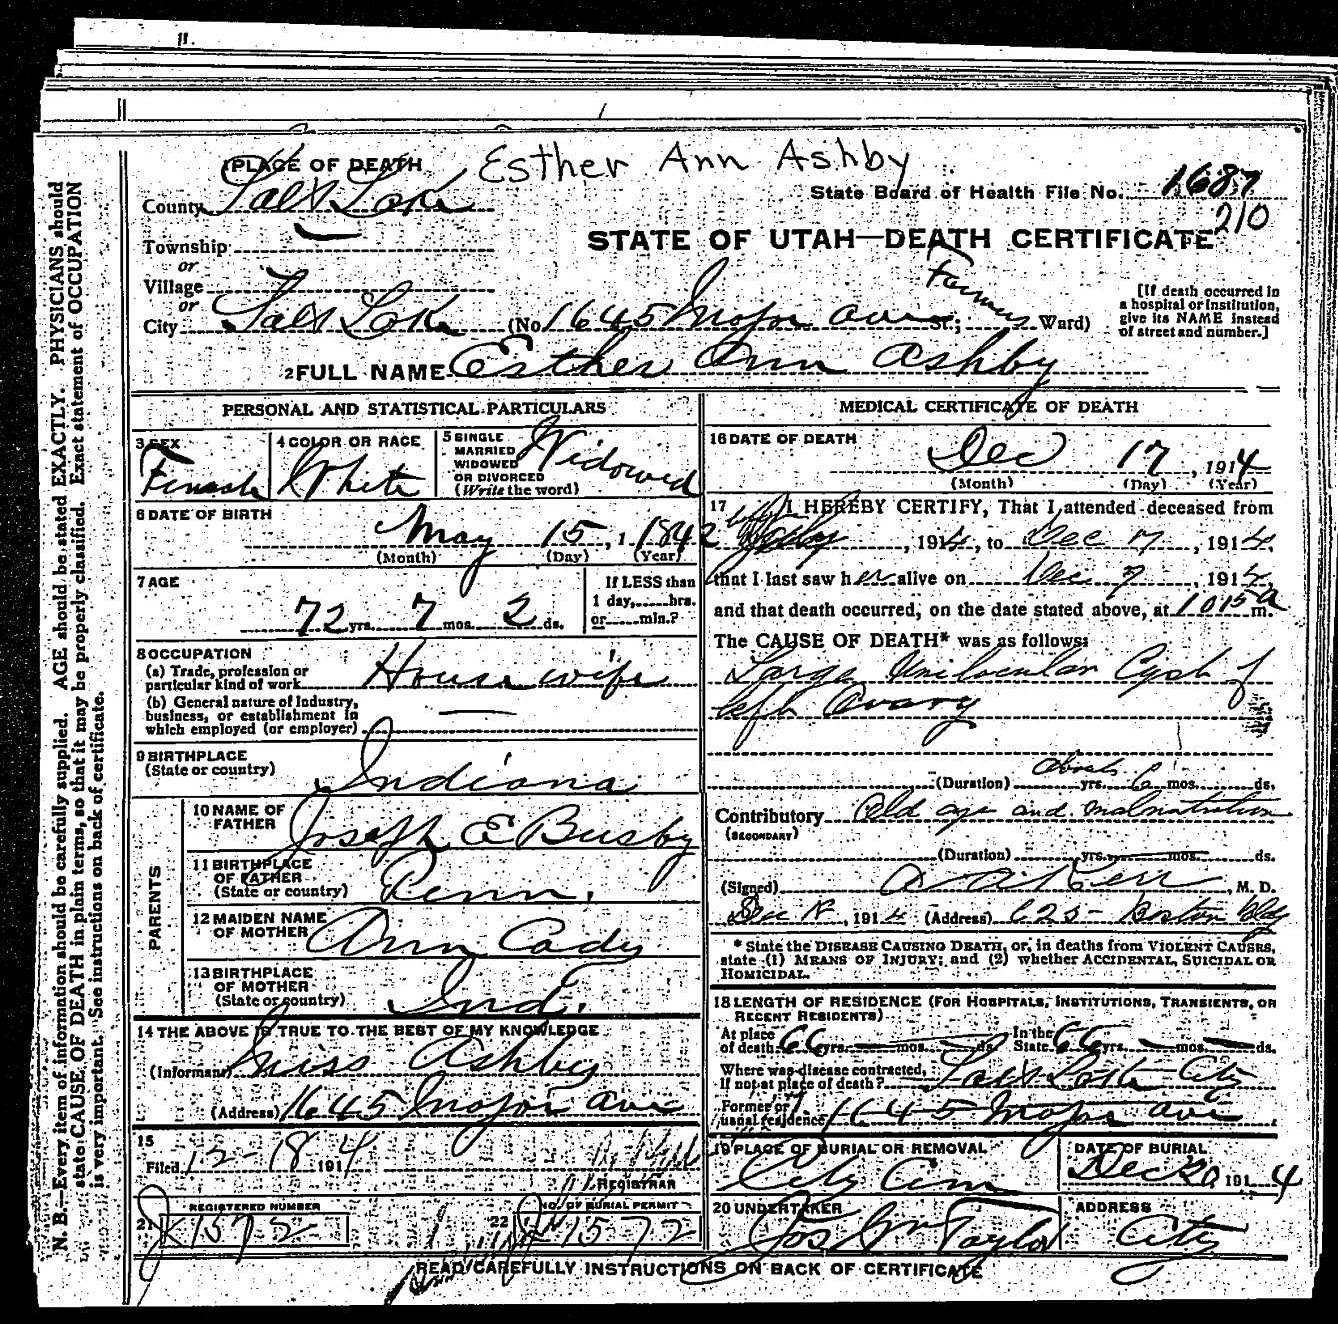 Esther Ann Ashby
1 PLACE OF DEATH
State Board of Health File No. 1687
210
County Salt Lake
STATE OF UTAH—DEATH CERTIFICATE
Township
or
Village
or
City Salt Lake (No 1645 Major Ave St.; Farmers Ward)
[If death occurred in
a hospital or institution,
give its NAME instead
of street and number.]
2 FULL NAME Esther Ann Ashby
PERSONAL AND STATISTICAL PARTICULARS
3 SEX Female
4 COLOR OR RACE White
5 SINGLE
MARRIED
WIDOWED
OR DIVORCED
(Write the word)
Widowed
6 DATE OF BIRTH
May 15, 1 1842
(Month) (Day) (Year)
7 AGE
72 yrs. 7 mos. 2 ds.
If LESS than
1 day, hrs.
or min.?
8 OCCUPATION
(a) Trade, profession or
particular kind of work House wife
(b) General nature of industry,
business, or establishment in
which employed (or employer)
9 BIRTHPLACE
(State or country) Indiana
PARENTS
10 NAME OF
FATHER Joseph E Busby
11 BIRTHPLACE
OF FATHER
(State or country) Penn.
12 MAIDEN NAME
OF MOTHER Ann Cady
13 BIRTHPLACE
OF MOTHER
(State or country) Ind.
14 THE ABOVE IS TRUE TO THE BEST OF MY KNOWLEDGE
(Informant) Miss Ashby
(Address) 1645 Major Ave
15
Filed 12-18 1914
REGISTRAR
REGISTERED NUMBER
21 1572
NO. OF BURIAL PERMIT
22 1572
MEDICAL CERTIFICATE OF DEATH
16 DATE OF DEATH
Dec 17, 1914
(Month) (Day) (Year)
17 I HEREBY CERTIFY, That I attended deceased from
, 1914, to Dec 17, 1914,
that I last saw her alive on Dec 7, 1914,
and that death occurred, on the date stated above, at 1015 a m.
The CAUSE OF DEATH* was as follows:
Large Unilocular Cyst of
left Ovary
(Duration) about yrs. 6 mos. ds.
Contributory Old age and malnutrition
(SECONDARY)
(Duration) yrs. mos. ds.
(Signed) Kerr, M. D.
Dec 18, 1914 (Address) 625 Boston Bldg
* State the DISEASE CAUSING DEATH, or, in deaths from VIOLENT CAUSES,
state (1) MEANS OF INJURY; and (2) whether ACCIDENTAL, SUICIDAL OR
HOMICIDAL.
18 LENGTH OF RESIDENCE (FOR HOSPITALS, INSTITUTIONS, TRANSIENTS, OR
RECENT RESIDENTS)
At place
of death 66 yrs. mos. ds.
In the
State 66 yrs. mos. ds.
Where was disease contracted,
if not at place of death? Salt Lake City
Former or
usual residence 1645 Major Ave
19 PLACE OF BURIAL OR REMOVAL
City Cem
DATE OF BURIAL
Dec 20 1914
20 UNDERTAKER
Jos Wm Taylor
ADDRESS
City
READ CAREFULLY INSTRUCTIONS ON BACK OF CERTIFICATE
N. B.—Every item of information should be carefully supplied. AGE should be stated EXACTLY. PHYSICIANS should
state CAUSE OF DEATH in plain terms, so that it may be properly classified. Exact statement of OCCUPATION
is very important. See instructions on back of certificate.